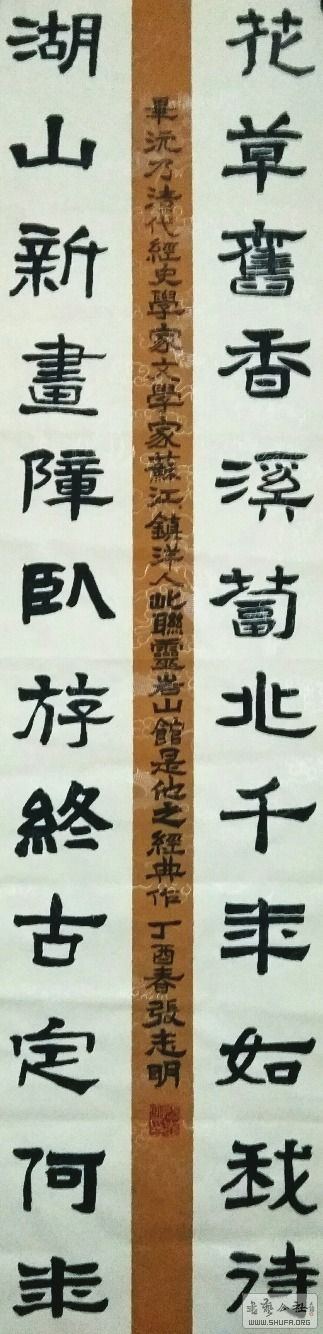 花草舊香溪蔔兆千年如我待
畢沅乃清代經史學家文學家蘇江鎮洋人此聯靈岩山館是他之經典作 丁酉春張志明
湖山新畫障臥斿終古定何年
书艺公社
WWW.SHUFA.ORG